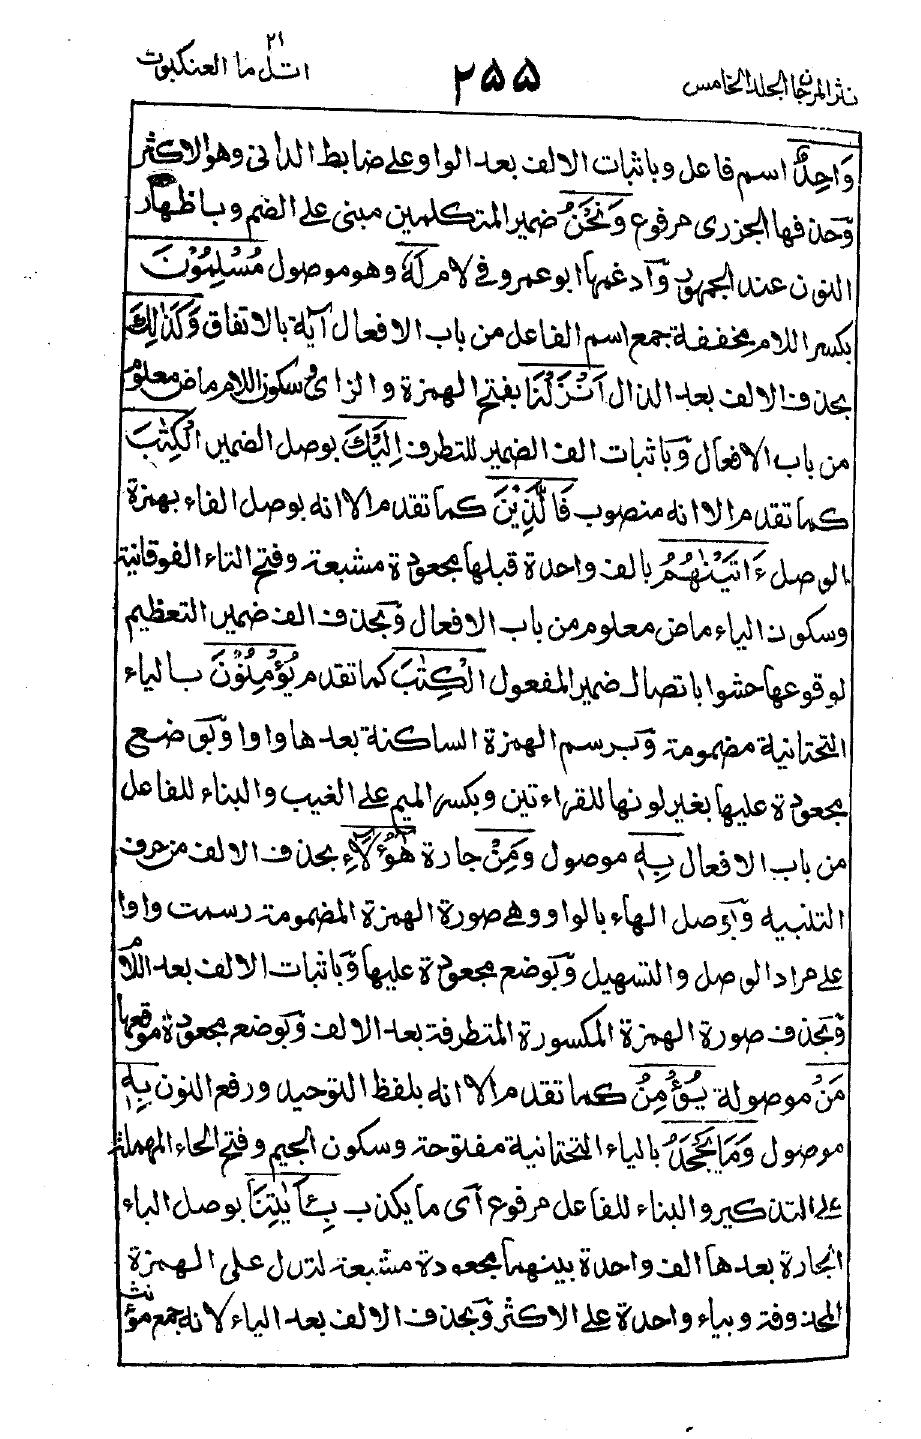 نثر المرجان الجلد الخامس
٢٥٥
اتل ما العنكبوت
٢١
وَاحِدٌ اسم فاعل وباثبات الالف بعد الواو على ضابط الدانى وهو الاكثر
وحذفها الجزرى مرفوع وَنَحْنُ ضمير المتكلمين مبنى على الضم وباظهار
النون عند الجمهور وآدغمها ابو عمرو فى لام لَهُ وهو موصول مُسْلِمُوْنَ
بكسر اللام مخففة جمع اسم الفاعل من باب الافعال آية بالاتفاق وَكَذٰلِكَ
بحذف الالف بعد الذال اَنْزَلْنَا بفتح الهمزة والزاى وسكون اللام ماض معلوم
من باب الافعال وباثبات الف الضمير للتطرف اِلَيْكَ بوصل الضمير الْكِتٰبَ
كما تقدم الا انه منصوب فَالَّذِيْنَ كما تقدم الا انه بوصل الفاء بهمزة
الوصل ءَاتَيْنٰهُمُ بالف واحدة قبلها مجعودة مشبعة وفتح التاء الفوقانية
وسكون الياء ماض معلوم من باب الافعال وبحذف الف ضمير التعظيم
لوقوعها حشوا باتصال ضمير المفعول الْكِتٰبَ كما تقدم يُؤْمِنُوْنَ بالياء
التحتانية مضمومة وبرسم الهمزة الساكنة بعدها واوا وبوضع
مجعودة عليها بغير لونها للقراءتين وبكسر الميم على الغيب والبناء للفاعل
من باب الافعال بِهٖ موصول وَمِنْ جارة هٰٓؤُلَآءِ بحذف الالف من حرف
التنبيه وبوصل الهاء بالواو وهى صورة الهمزة المضمومة رسمت واوا
على مراد الوصل والتسهيل وبوضع مجعودة عليها وباثبات الالف بعد اللام
وبحذف صورة الهمزة المكسورة المتطرفة بعد الالف وبوضع مجعودة موقعها
مَنْ موصولة يُؤْمِنُ كما تقدم الا انه بلفظ التوحيد ورفع النون بِهٖ
موصول وَمَا يَجْحَدُ بالياء التحتانية مفتوحة وسكون الجيم وفتح الحاء المهملة
على التذكير والبناء للفاعل مرفوع آى ما يكذب بِـَٔايٰتِنَا بوصل الباء
الجارة بعدها الف واحدة بينهما مجعودة مشبعة لتدل على الهمزة
المحذوفة وبياء واحدة على الاكثر وبحذف الالف بعد الياء لانه جمع مؤنث